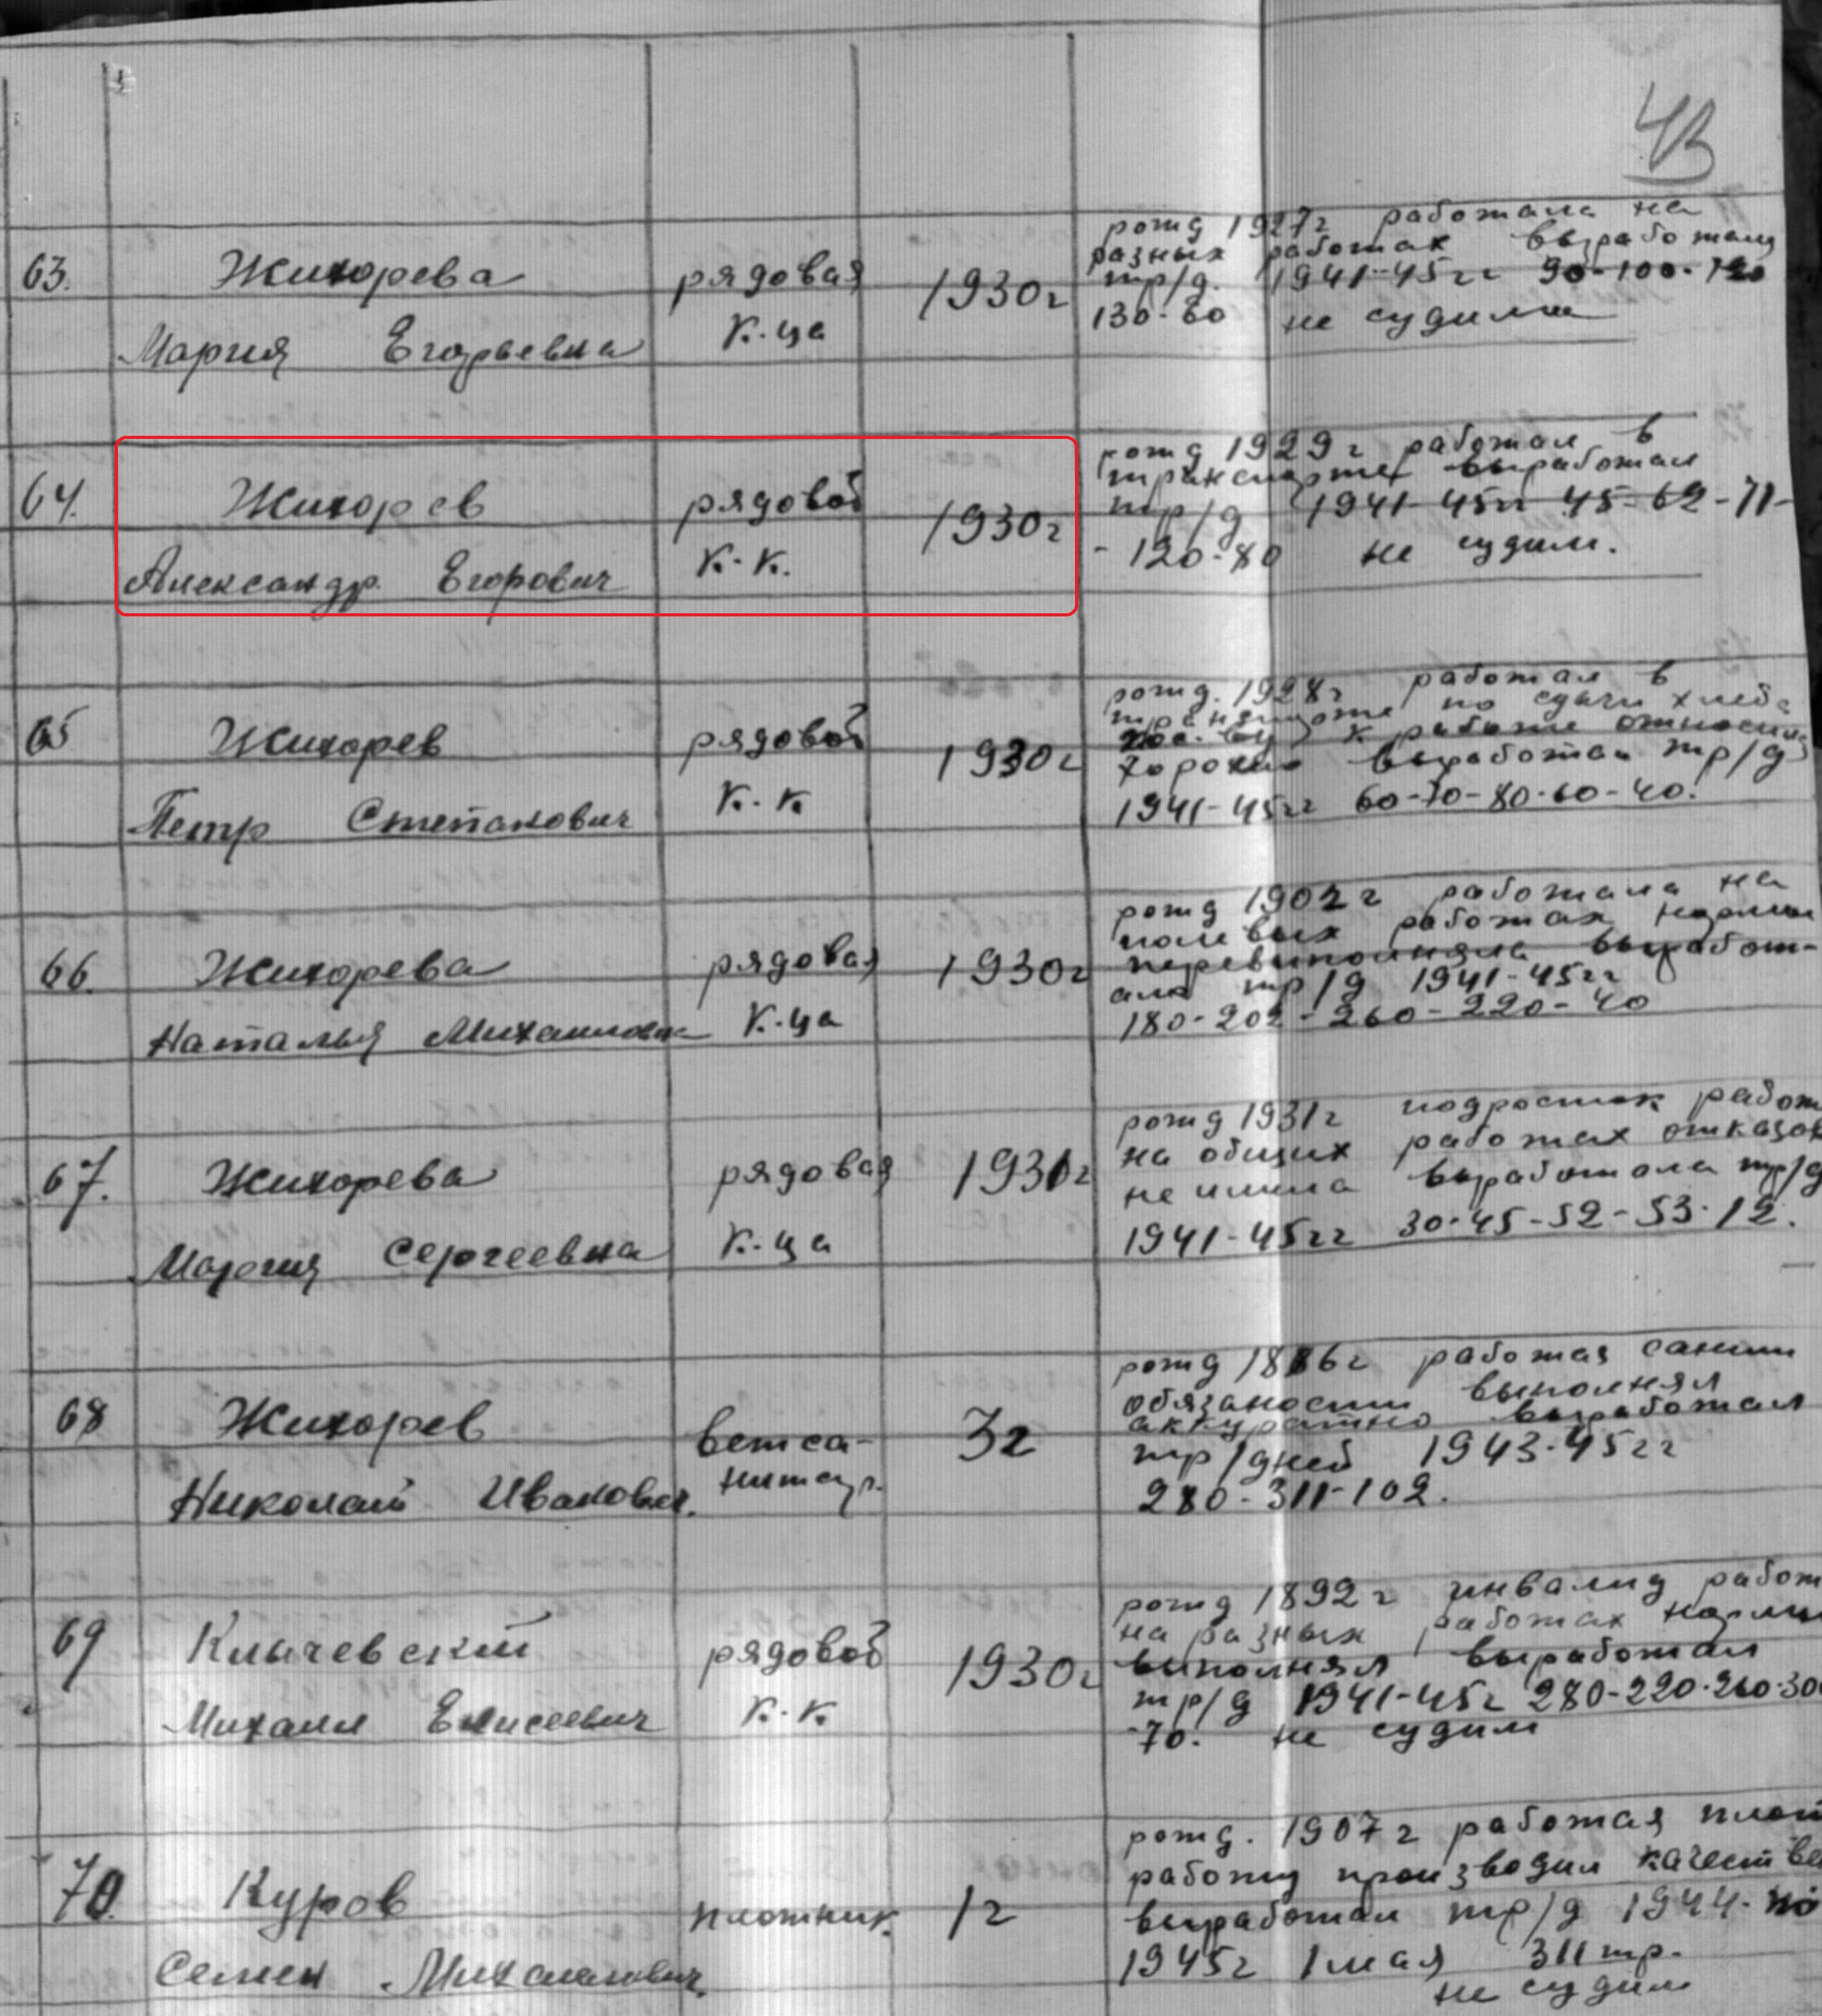 43
63. Жихорева рядовая 1930г рожд 1927г работала на
Мария Егорьевна к-ца разных работах выработала
тр/д. 1941-45гг 90-100-120
130-60 не судилась
64. Жихорев рядовой 1930г рожд 1929г работал в
Александр Егорович К-К. транспорте выработал
тр/д 1941-45гг 45-62-71-
-120-80 не судим.
65 Жихорев рядовой 1930г рожд. 1928г работал в
Петр Степанович К-К транспорте по сдачи хлеба
к работе относился
хорошо выработал тр/д
1941-45гг 60-70-80-60-40.
66. Жихорева рядовая 1930г рожд 1902г работала на
Наталья Михаиловна К-ца полевых работах нормы
перевыполняла выработ-
ала тр/д 1941-45гг
180-202-260-220-40
67. Жихорева рядовая 1931г рожд 1931г подросток работ
Мария Сергеевна К-ца на общих работах отказов
не имела выработала тр/д
1941-45гг 30-45-52-53-12.
68 Жихорев ветса- 3г рожд 1886г работая саним
Николай Иванович. нитар. обязаности выполнял
аккуратно выработал
тр/дней 1943-45гг
280-311-102.
69 Клычевский рядовой 1930г рожд 1892г инвалид работ
Михаил Елисеевич К-К на разных работах нормы
выполнял выработал
тр/д 1941-45г 280-220-260-30
-70. не судим
70. Куров плотник. 1г рожд. 1907г работая плот
Семен Михаилович. работу производил качестве
выработал тр/д 1944- по
1945г 1 мая 311 тр.
не судим